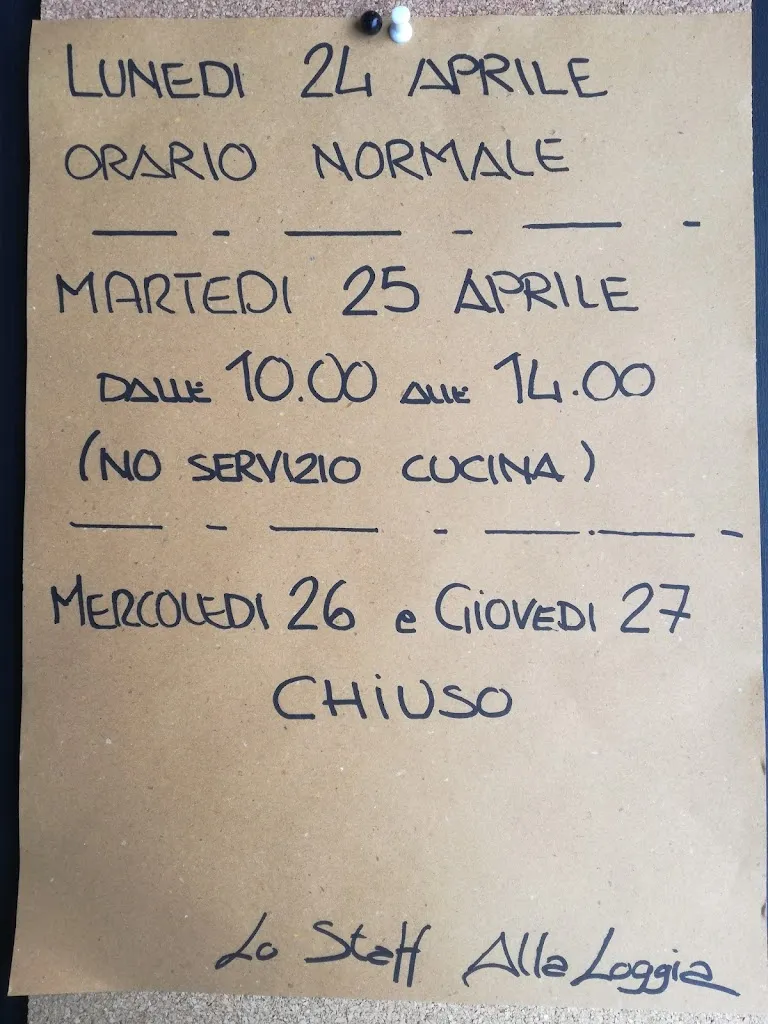 LUNEDI 24 APRILE
ORARIO NORMALE
MARTEDI 25 APRILE
DALLE 10.00 ALLE 14.00
(NO SERVIZIO CUCINA)
MERCOLEDI 26 e GIOVEDI 27
CHIUSO
Lo Staff Alla Loggia